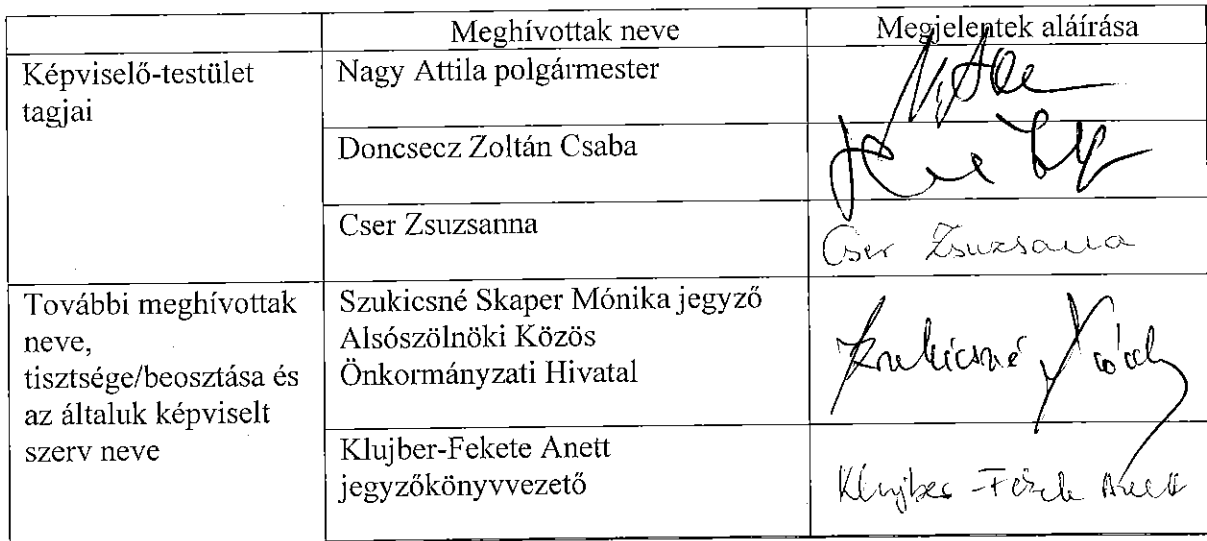 Meghívottak neve
Megjelentek aláírása
Képviselő-testület
tagjai
Nagy Attila polgármester
Doncsecz Zoltán Csaba
Cser Zsuzsanna
Cser Zsuzsanna
További meghívottak
neve,
tisztsége/beosztása és
az általuk képviselt
szerv neve
Szukicsné Skaper Mónika jegyző
Alsószölnöki Közös
Önkormányzati Hivatal
Szukicsné
Klujber-Fekete Anett
jegyzőkönyvvezető
Klujber-Fekete Anett